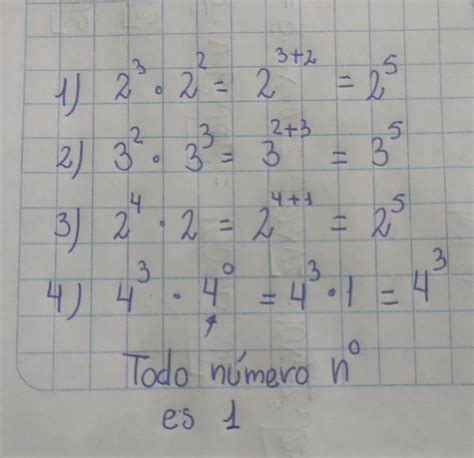 1) 2³ · 2² = 2³⁺² = 2⁵
2) 3² · 3³ = 3²⁺³ = 3⁵
3) 2⁴ · 2 = 2⁴⁺¹ = 2⁵
4) 4³ · 4⁰ = 4³ · 1 = 4³
↑
Todo número n⁰
es 1